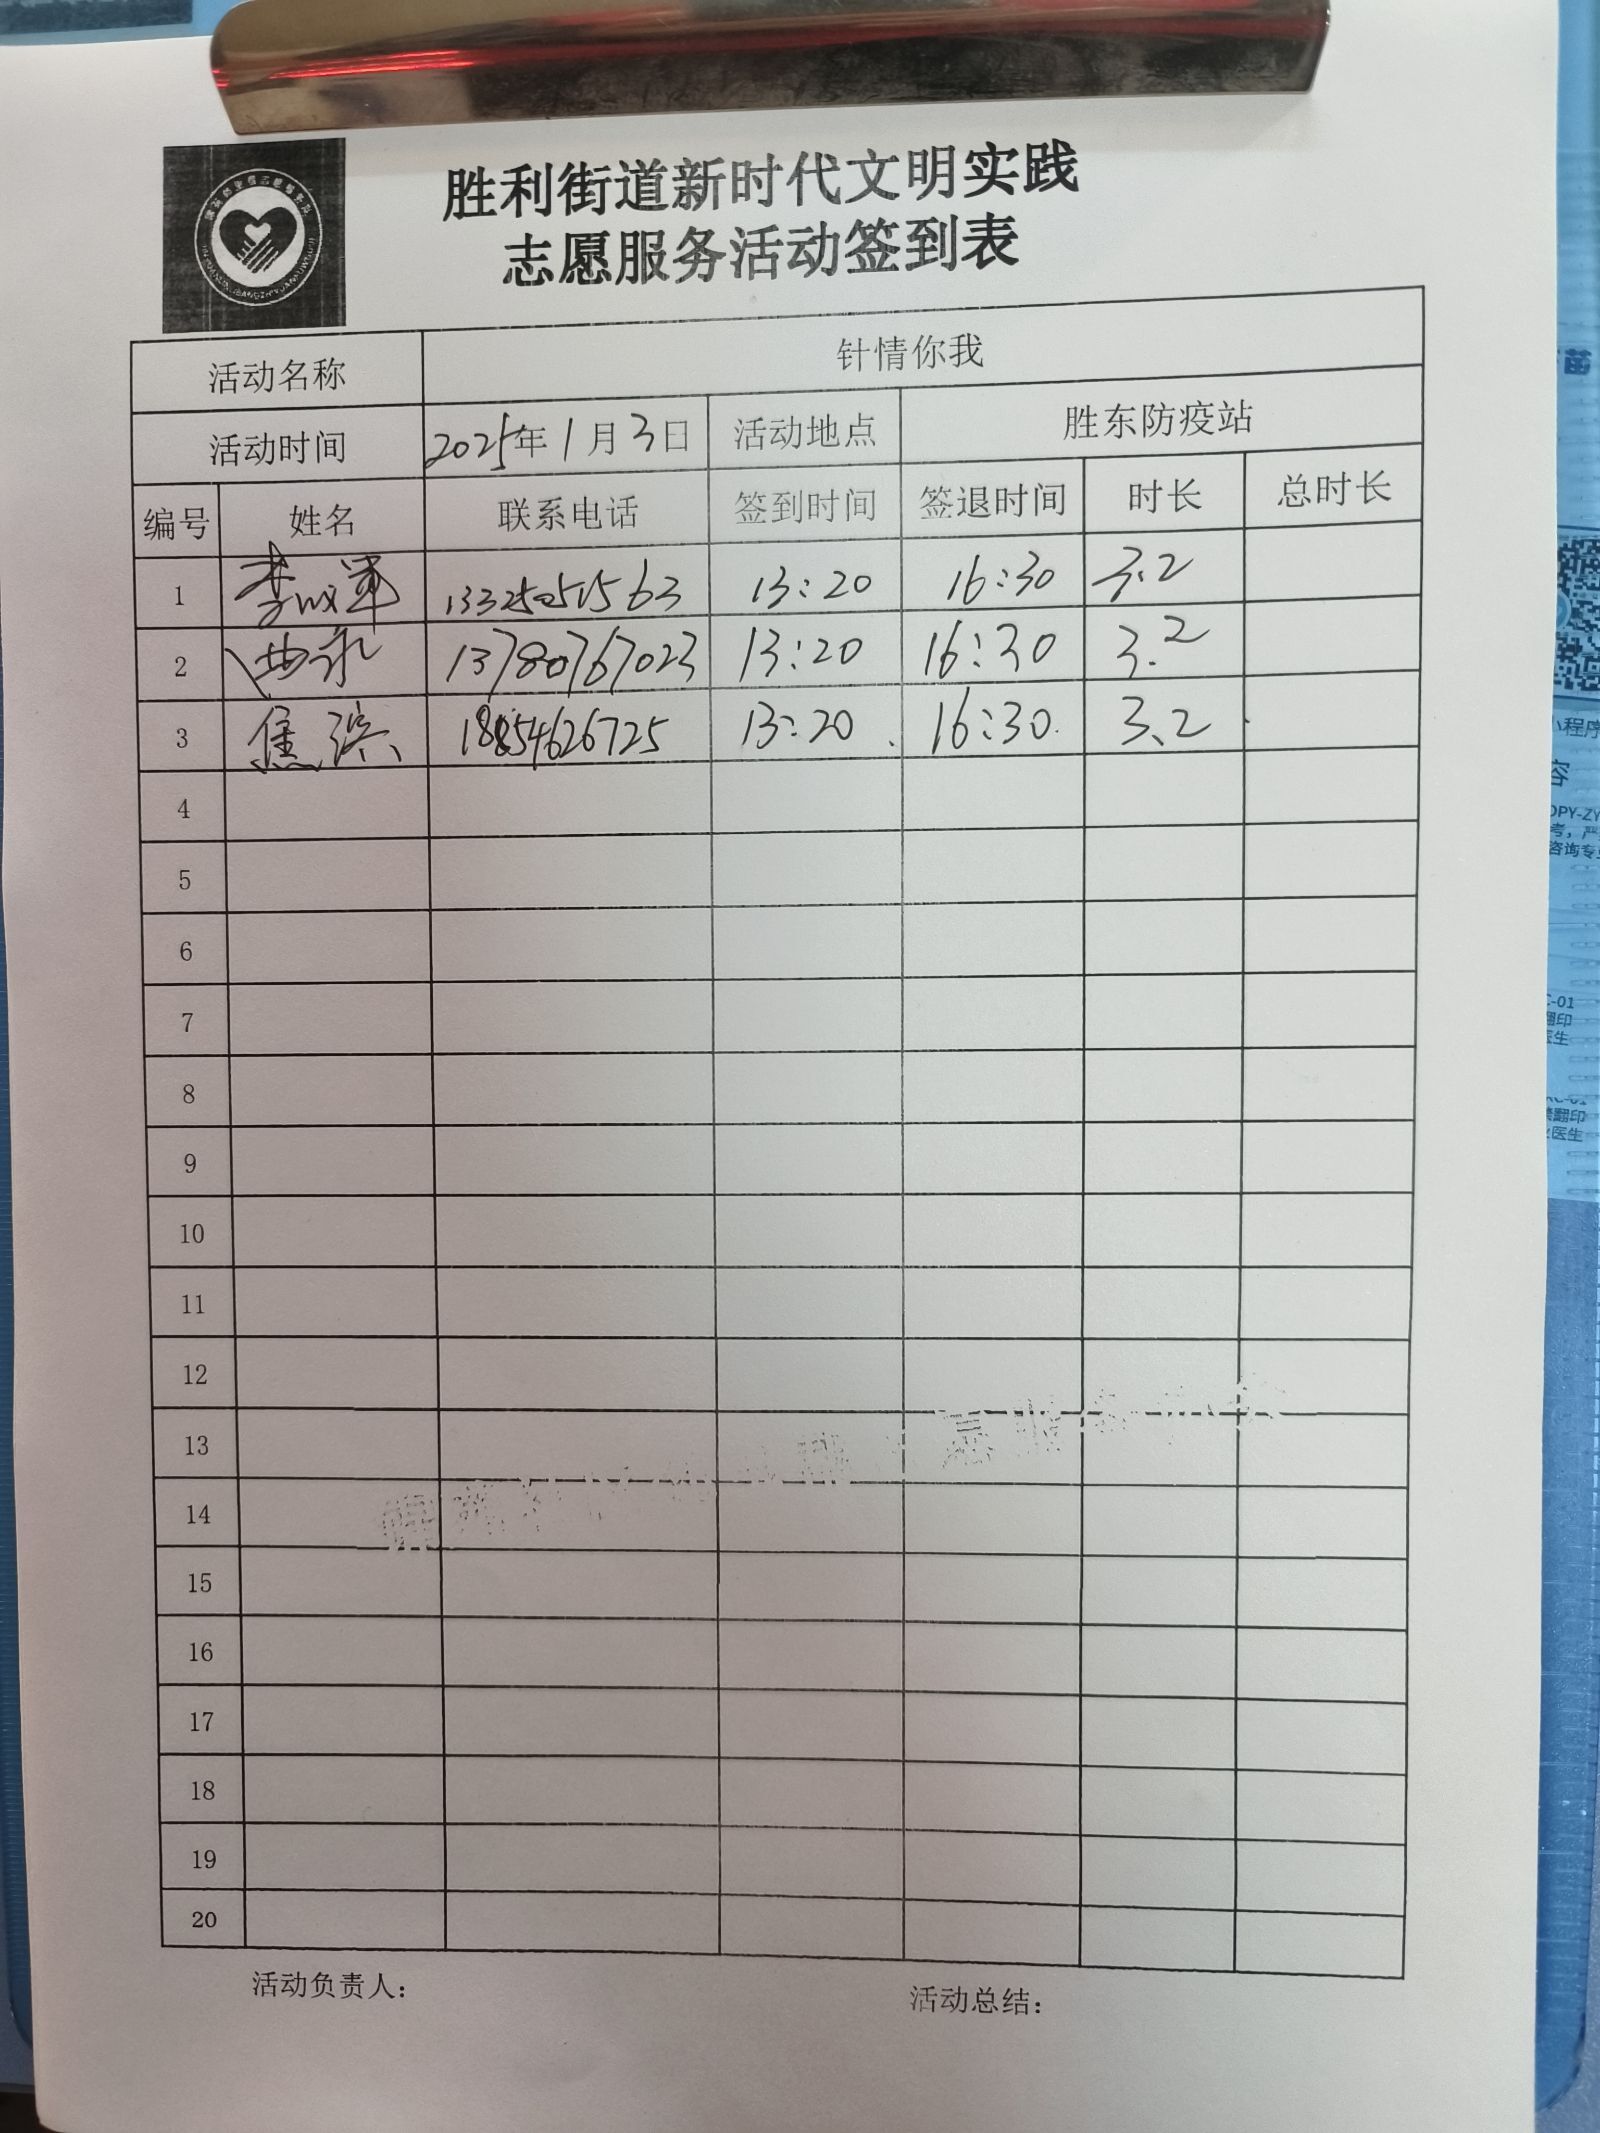 胜利街道新时代文明实践
志愿服务活动签到表
活动名称 针情你我
活动时间 2025年1月3日 活动地点 胜东防疫站
编号 姓名 联系电话 签到时间 签退时间 时长 总时长
1 李 13325051563 13:20 16:30 3.2
2 曲永 13780767023 13:20 16:30 3.2
3 焦滨 18854626725 13:20 16:30 3.2
4
5
6
7
8
9
10
11
12
13
14
15
16
17
18
19
20
活动负责人: 活动总结:
苗
小程序
容
OPY-ZY
考，严
咨询专业
C-01
翻印
医生
翻印
医生